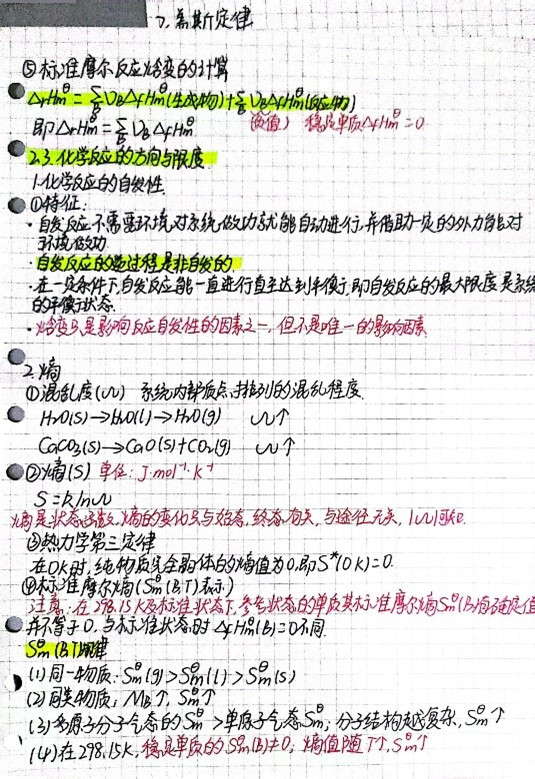 7. 盖斯定律
⑤标准摩尔反应焓变的计算
ΔrHm^θ = Σ_B ν_BΔfHm^θ(生成物)+Σ_B ν_BΔfHm^θ(反应物)
即ΔrHm^θ=Σ_B ν_BΔfHm^θ (负值) 稳定单质ΔfHm^θ=0
2.3. 化学反应的方向与限度
1.化学反应的自发性
①特征:
·自发反应不需要环境对系统做功就能自动进行,并借助一定的外力能对
环境做功
·自发反应的逆过程是非自发的
·在一定条件下,自发反应能一直进行直至达到平衡,即自发反应的最大限度是系统
的平衡状态.
·焓变只是影响反应自发性的因素之一,但不是唯一的影响因素
2.熵
①混乱度(ω) 系统内部质点排列的混乱程度.
H₂O(s)→H₂O(l)→H₂O(g) ω↑
CaCO₃(s)→CaO(s)+CO₂(g) ω↑
②熵(S) 单位: J·mol⁻¹·K⁻¹
S=klnω
熵是状态函数,熵的变化只与始态,终态有关,与途径无关,
③热力学第三定律
在0K时,纯物质完全晶体的熵值为0,即S*(0K)=0.
④标准摩尔熵(Sm^θ(B,T)表示)
注意:在298.15K及标准状态下,参考状态的单质其标准摩尔熵Sm^θ(B)
并不等于0,与标准状态时ΔfHm^θ(B)=0不同.
Sm^θ(B,T)规律
(1)同一物质: Sm^θ(g)>Sm^θ(l)>Sm^θ(s)
(2)同类物质; M_B↑, Sm^θ↑
(3)多原子分子气态的Sm^θ>单原子气态Sm^θ; 分子结构越复杂, Sm^θ↑
(4)在298.15K,稳定单质的Sm^θ(B)≠0; 熵值随T↑,Sm^θ↑